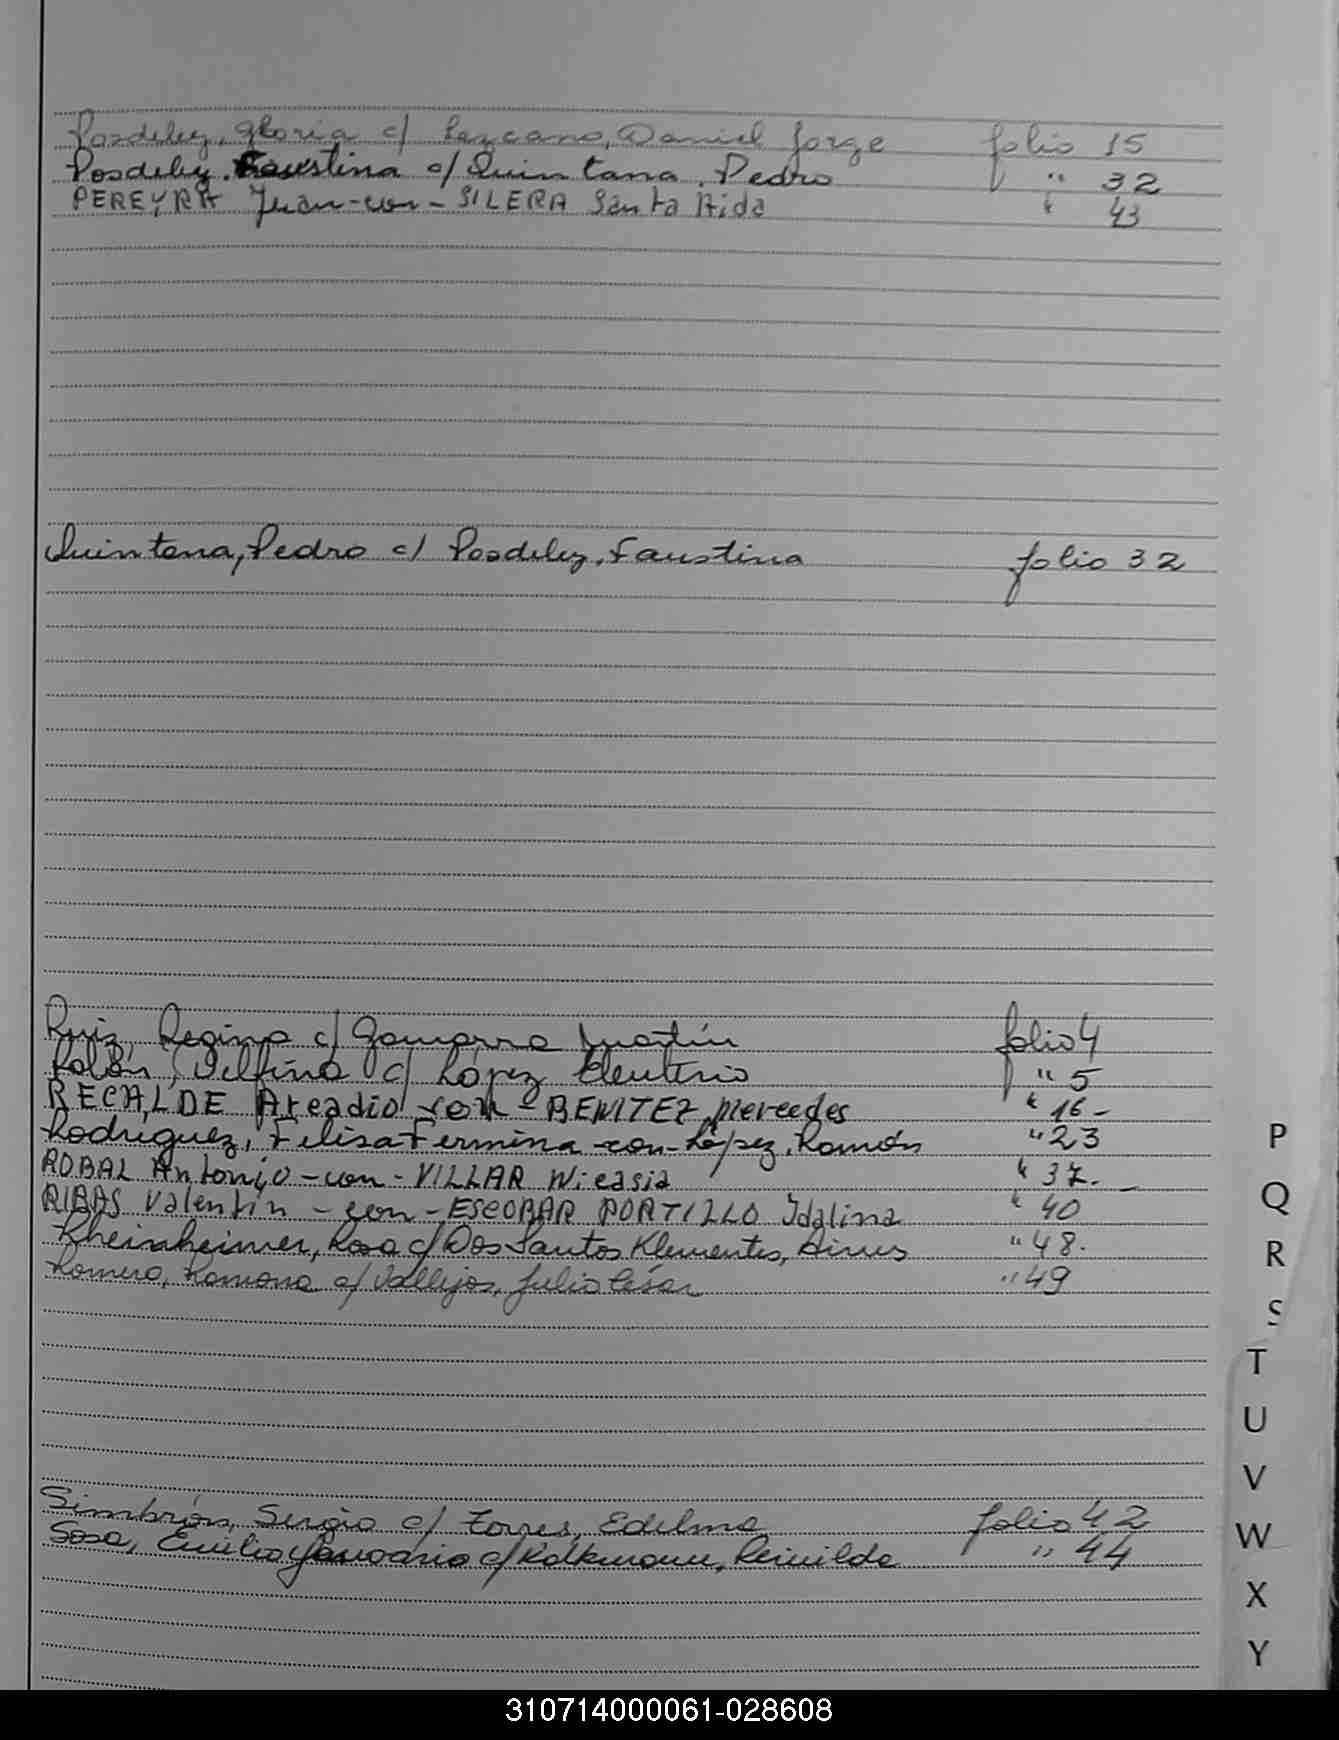 Posdeley, Gloria c/ Lezcano, Daniel Jorge folio 15
Posdeley, Faustina c/ Quintana, Pedro " 32
PEREYRA Juan-con-SILERA Santa Aida " 43
Quintana, Pedro c/ Posdeley, Faustina folio 32
Ruiz, Regina c/ Gamarra Martín folio 4
Rolón, Delfina c/ López Eleuterio " 5
RECALDE Arcadio -con- BENITEZ Mercedes " 16-
Rodriguez, Felisa Fermina -con- López, Ramón " 23
ROBAL Antonio -con- VILLAR Nicasia " 37.-
RIBAS Valentin -con- ESCOBAR PORTILLO Idalina " 40
Rheinheimer, Rosa c/ Dos Santos Klementes, " 48.
Romero, Ramona c/ Vallejos, Julio César " 49
P
Q
R
S
T
U
V
W
X
Y
Simbrón, Sergio c/ Torres, Edelma folio 42
Sosa, Emilio Januario c/ Kolkmann, Reinilda " 44
310714000061-028608